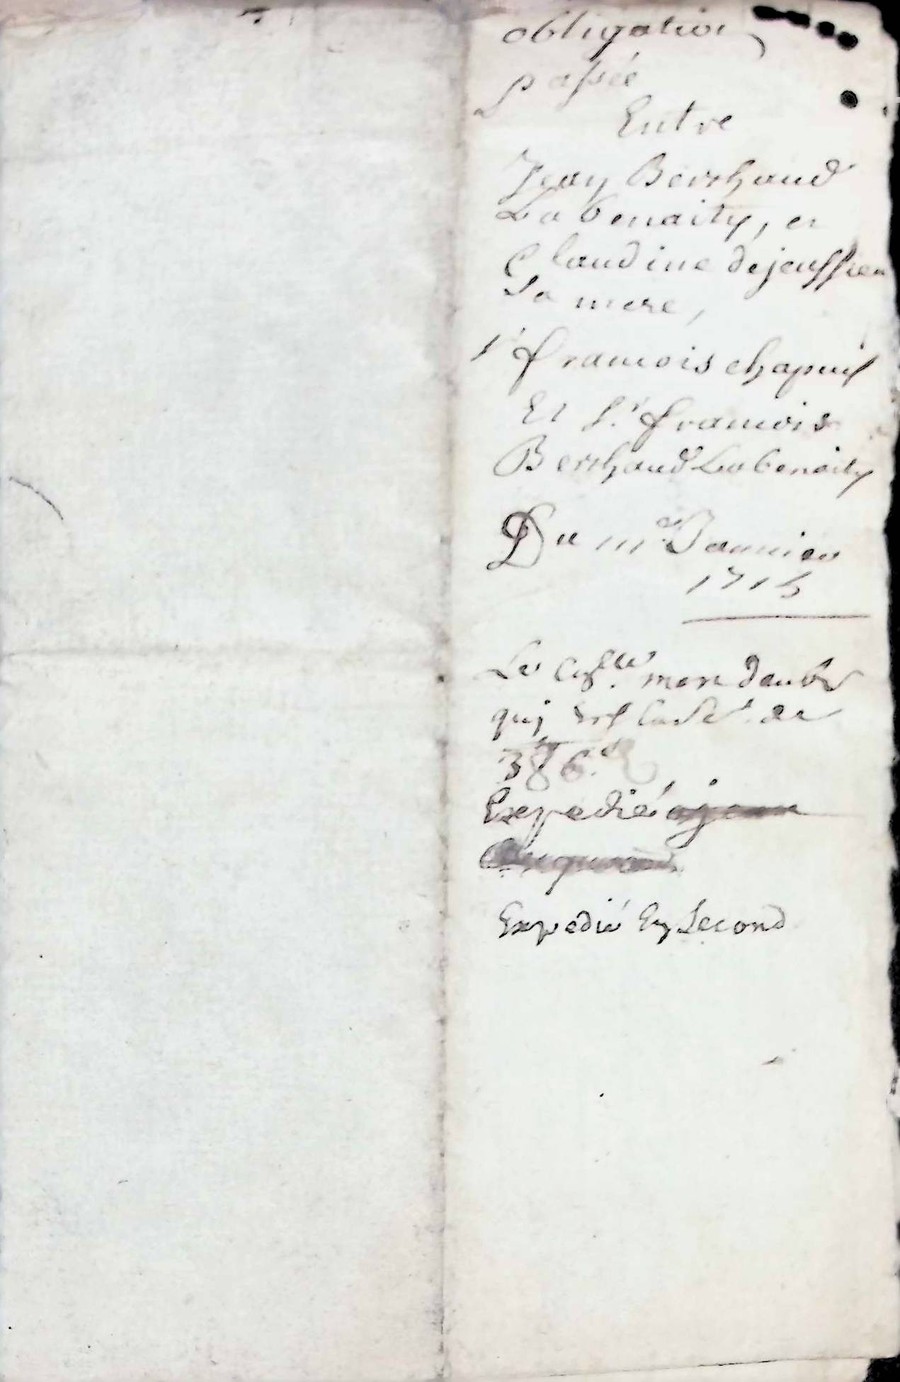 obligation
passée
Entre
Jean Berthaud
Labenaity, et
Claudine dejeussieu
Sa mere,
Sr francois chapuis
Et Sr francois
Berthaud Labenaity
Du Janvier
1715
Le mon
quj de
386
Expedié
Expedié En Second